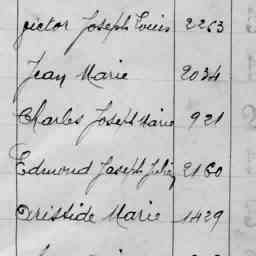 Victor Joseph Louis 2263
Jean Marie 2034
Charles Joseph Marie 921
Edmond Joseph 2160
Aristide Marie 1429